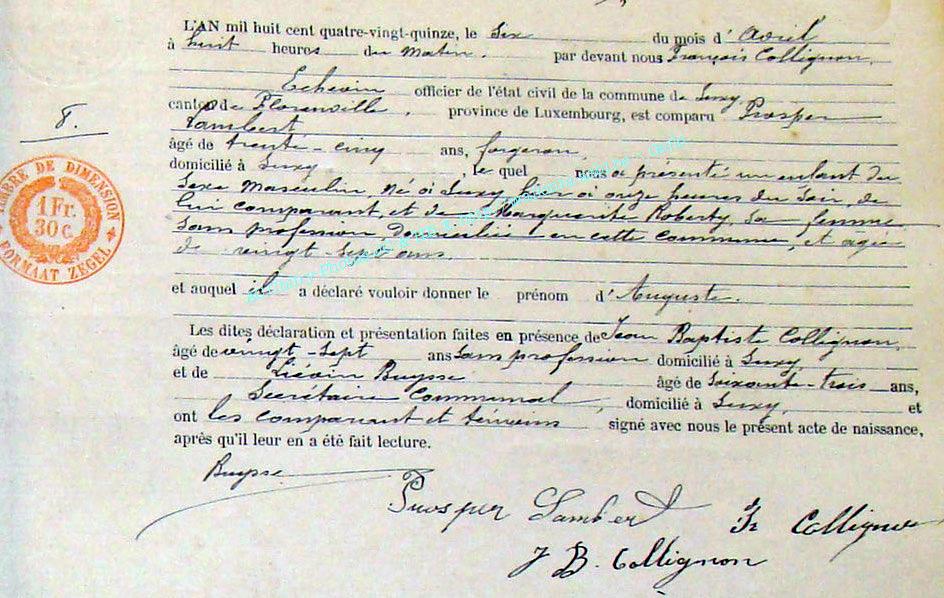 L'AN mil huit cent quatre-vingt-quinze, le Six du mois d' Avril
à huit heures du Matin. par devant nous François Collignon,
Echevin officier de l'état civil de la commune de Suxy,
canton de Florenville, province de Luxembourg, est comparu Prosper
Lambert
8.
âgé de trente-cinq ans, forgeron,
domicilié à Suxy, le quel nous a présenté un enfant du
Sexe Masculin, né à Suxy, hier à onze heures du Soir, de
lui comparant, et de Marguerite Roberty, Sa femme
Sans profession Domiciliée en cette commune, et agée
de vingt-Sept ans.
et auquel il a déclaré vouloir donner le prénom d'Auguste.
Les dites déclaration et présentation faites en présence de Jean Baptiste Collignon,
âgé de vingt-Sept ans Sans profession domicilié à Suxy
et de Liévin Buysse âgé de Soixante-trois ans,
Secrétaire Communal, domicilié à Suxy, et
ont les comparant et témoins signé avec nous le présent acte de naissance,
après qu'il leur en a été fait lecture.
Buysse
Prosper Lambert Fr Collignon
J B. Collignon
TIMBRE DE DIMENSION
1 Fr.
30 C.
FORMAAT ZEGEL